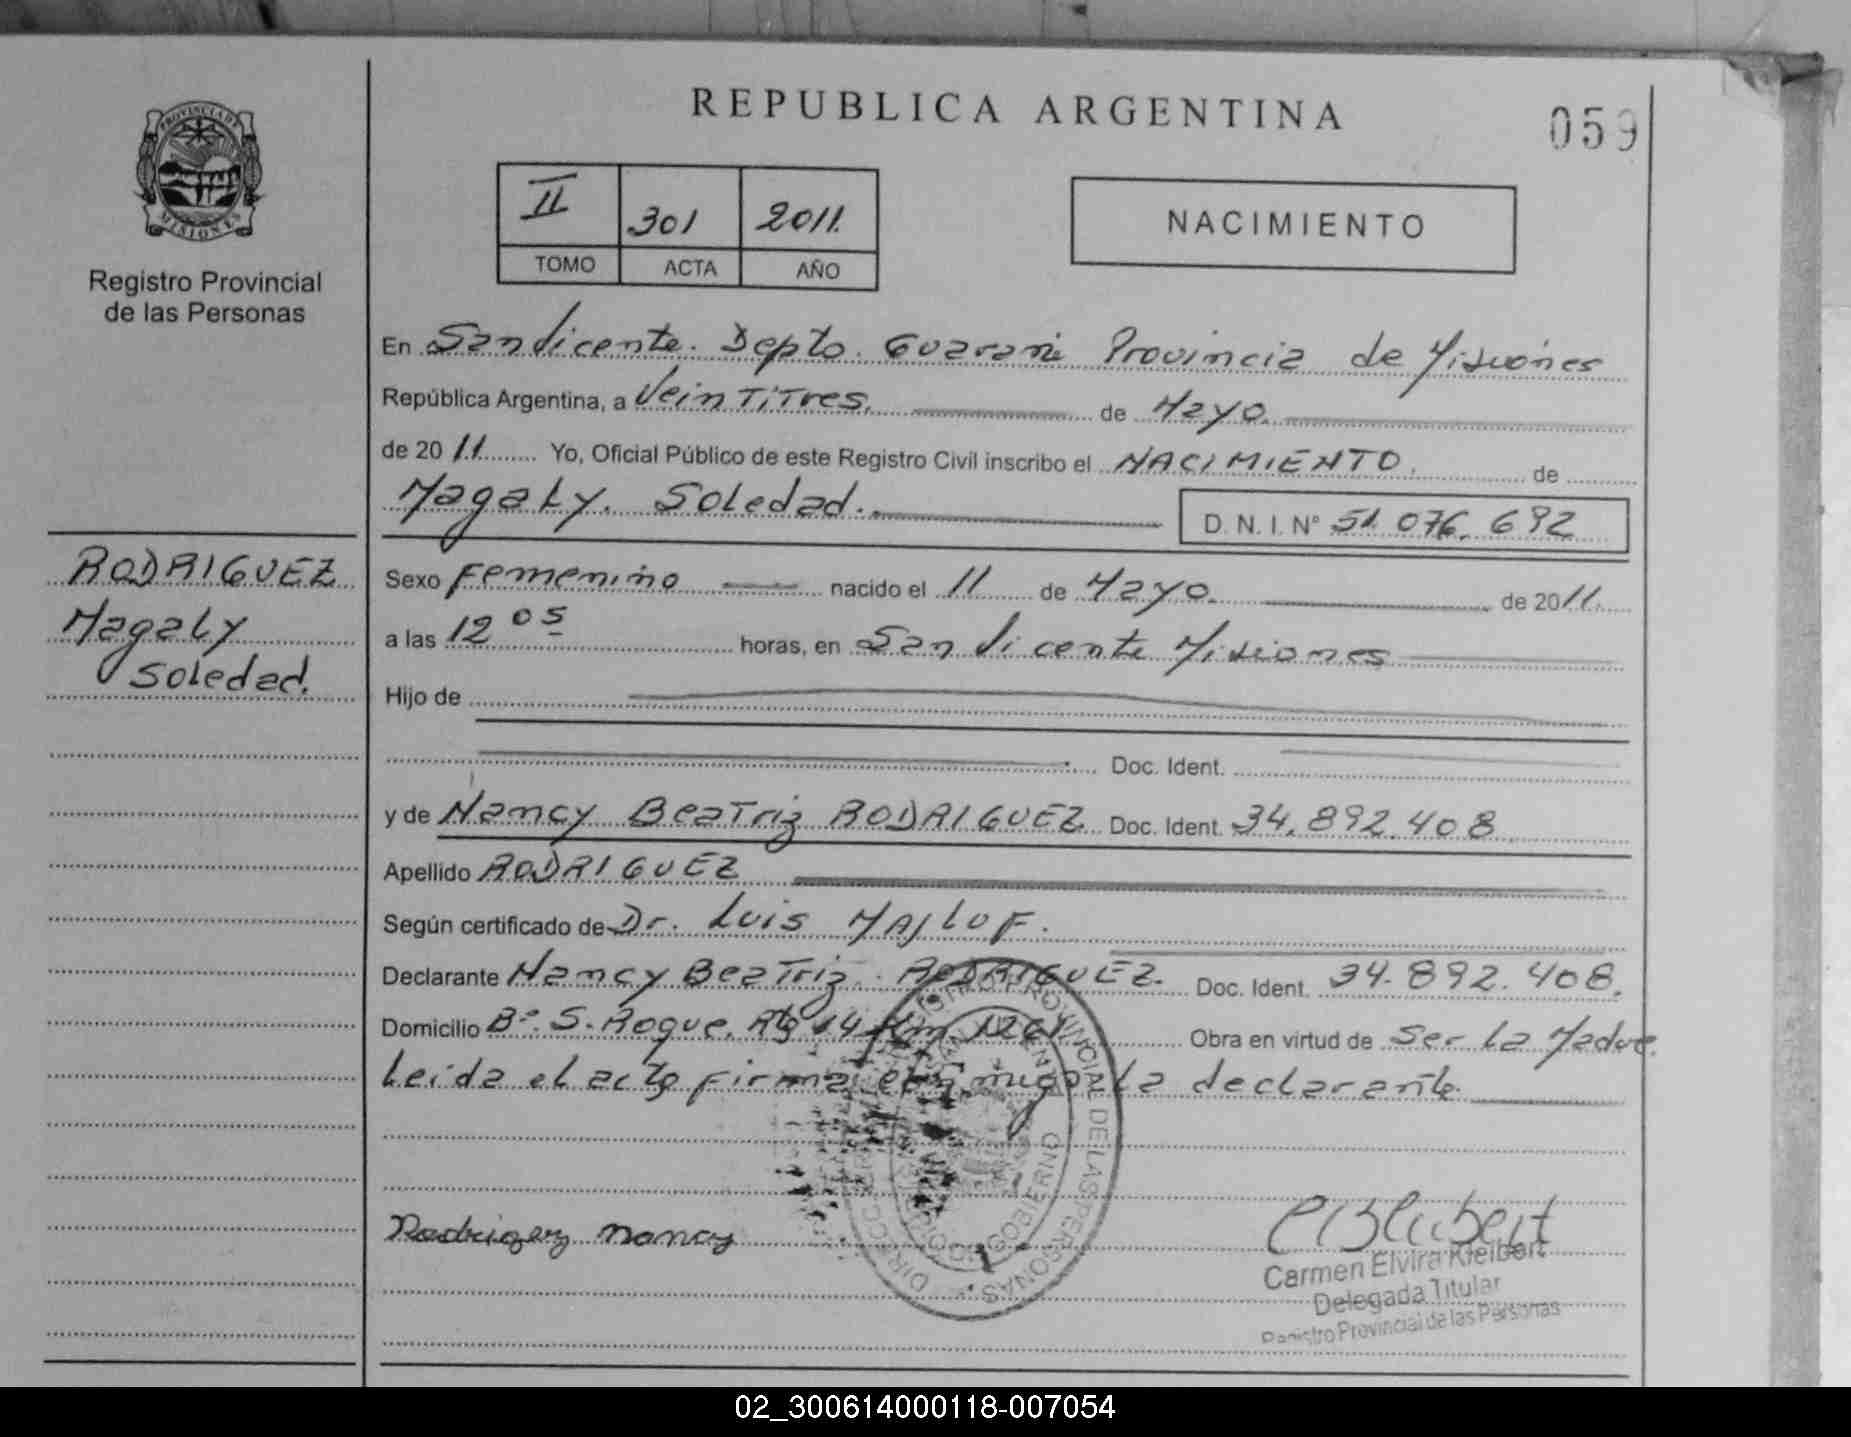 REPUBLICA ARGENTINA
059
PROVINCIA DE MISIONES
Registro Provincial
de las Personas
II 301 2011.
TOMO ACTA AÑO
NACIMIENTO
En San Vicente. Depto. Guarani Provincia de Misiones
República Argentina, a Vein TiTres. de Mayo.
de 2011 Yo, Oficial Público de este Registro Civil inscribo el NACIMIENTO. de
Magaly. Soledad. D. N. I. Nº 51.076.692
RODRIGUEZ
Magaly
Soledad.
Sexo Femenino nacido el 11 de Mayo. de 2011.
a las 12 05 horas, en San Vicente Misiones
Hijo de
Doc. Ident.
y de Nancy BeaTriz RODRIGUEZ Doc. Ident. 34.892.408
Apellido RODRIGUEZ
Según certificado de Dr. Luis MAJLUF.
Declarante Nancy BeaTriz. RODRIGUEZ. Doc. Ident. 34.892.408.
Domicilio Bº. S. Roque. Rta 14 Km 1261. Obra en virtud de Ser La Madre.
Leida el acta firma conmigo La declarante.
Rodriguez nancy
Carmen Elvira Kleibert
Delegada Titular
Registro Provincial de las Personas
PROVINCIAL DE LAS PERSONAS
GOBIERNO
02_300614000118-007054